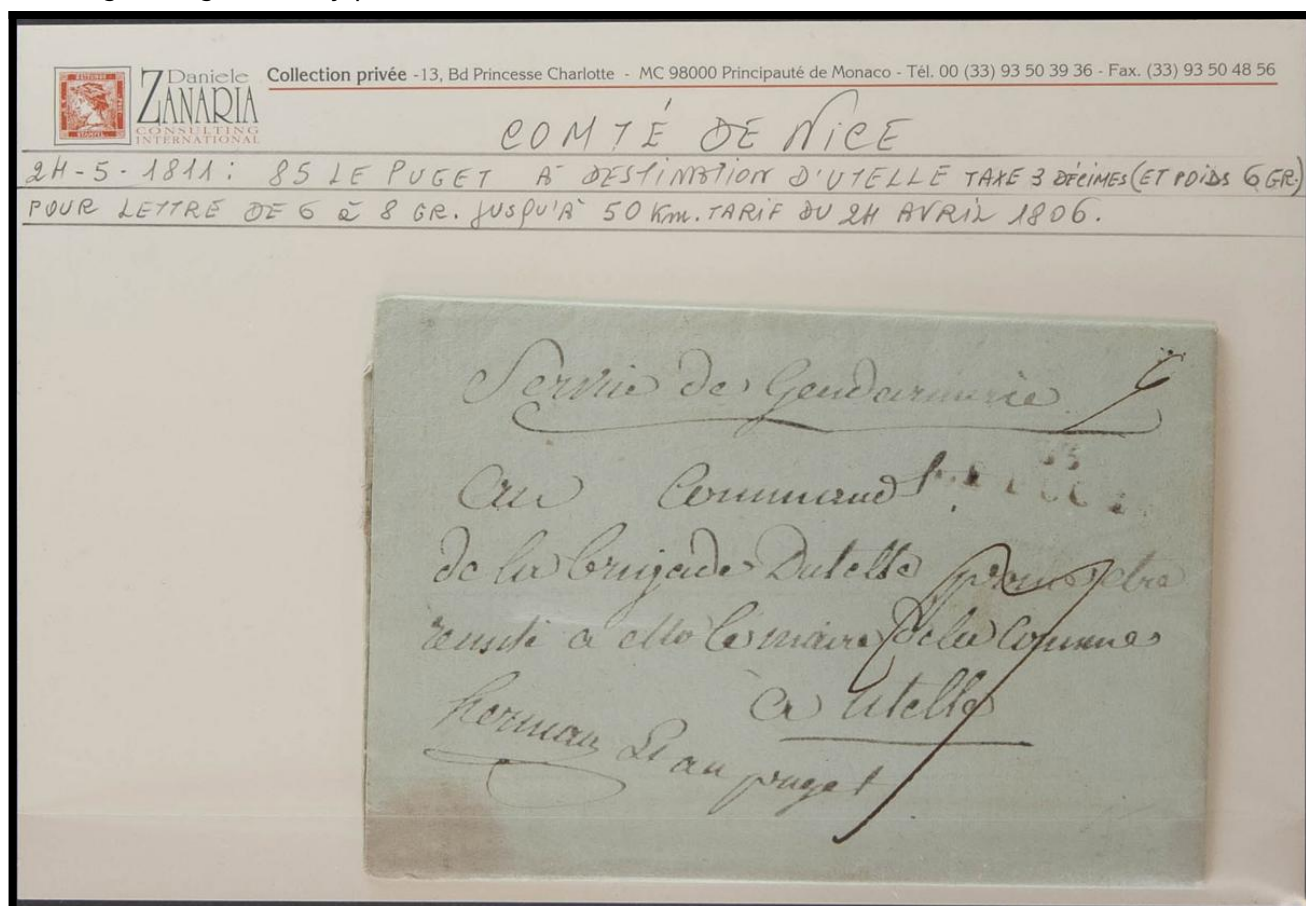 Daniele
ZANARIA
CONSULTING
INTERNATIONAL
Collection privée - 13, Bd Princesse Charlotte - MC 98000 Principauté de Monaco - Tél. 00 (33) 93 50 39 36 - Fax. (33) 93 50 48 56
COMTÉ DE NICE
24-5-1811: 85 LE PUGET À DESTINATION D'UTELLE TAXE 3 DÉCIMES (ET POIDS 6 GR.)
POUR LETTRE DE 6 à 8 GR. JUSQU'À 50 Km. TARIF DU 24 AVRIL 1806.
Service de Gendarmerie
6
Au Commandt
de la brigade Dutelle pour etre
remise a le maire de la Commune
a utelle
herman Lt au puget